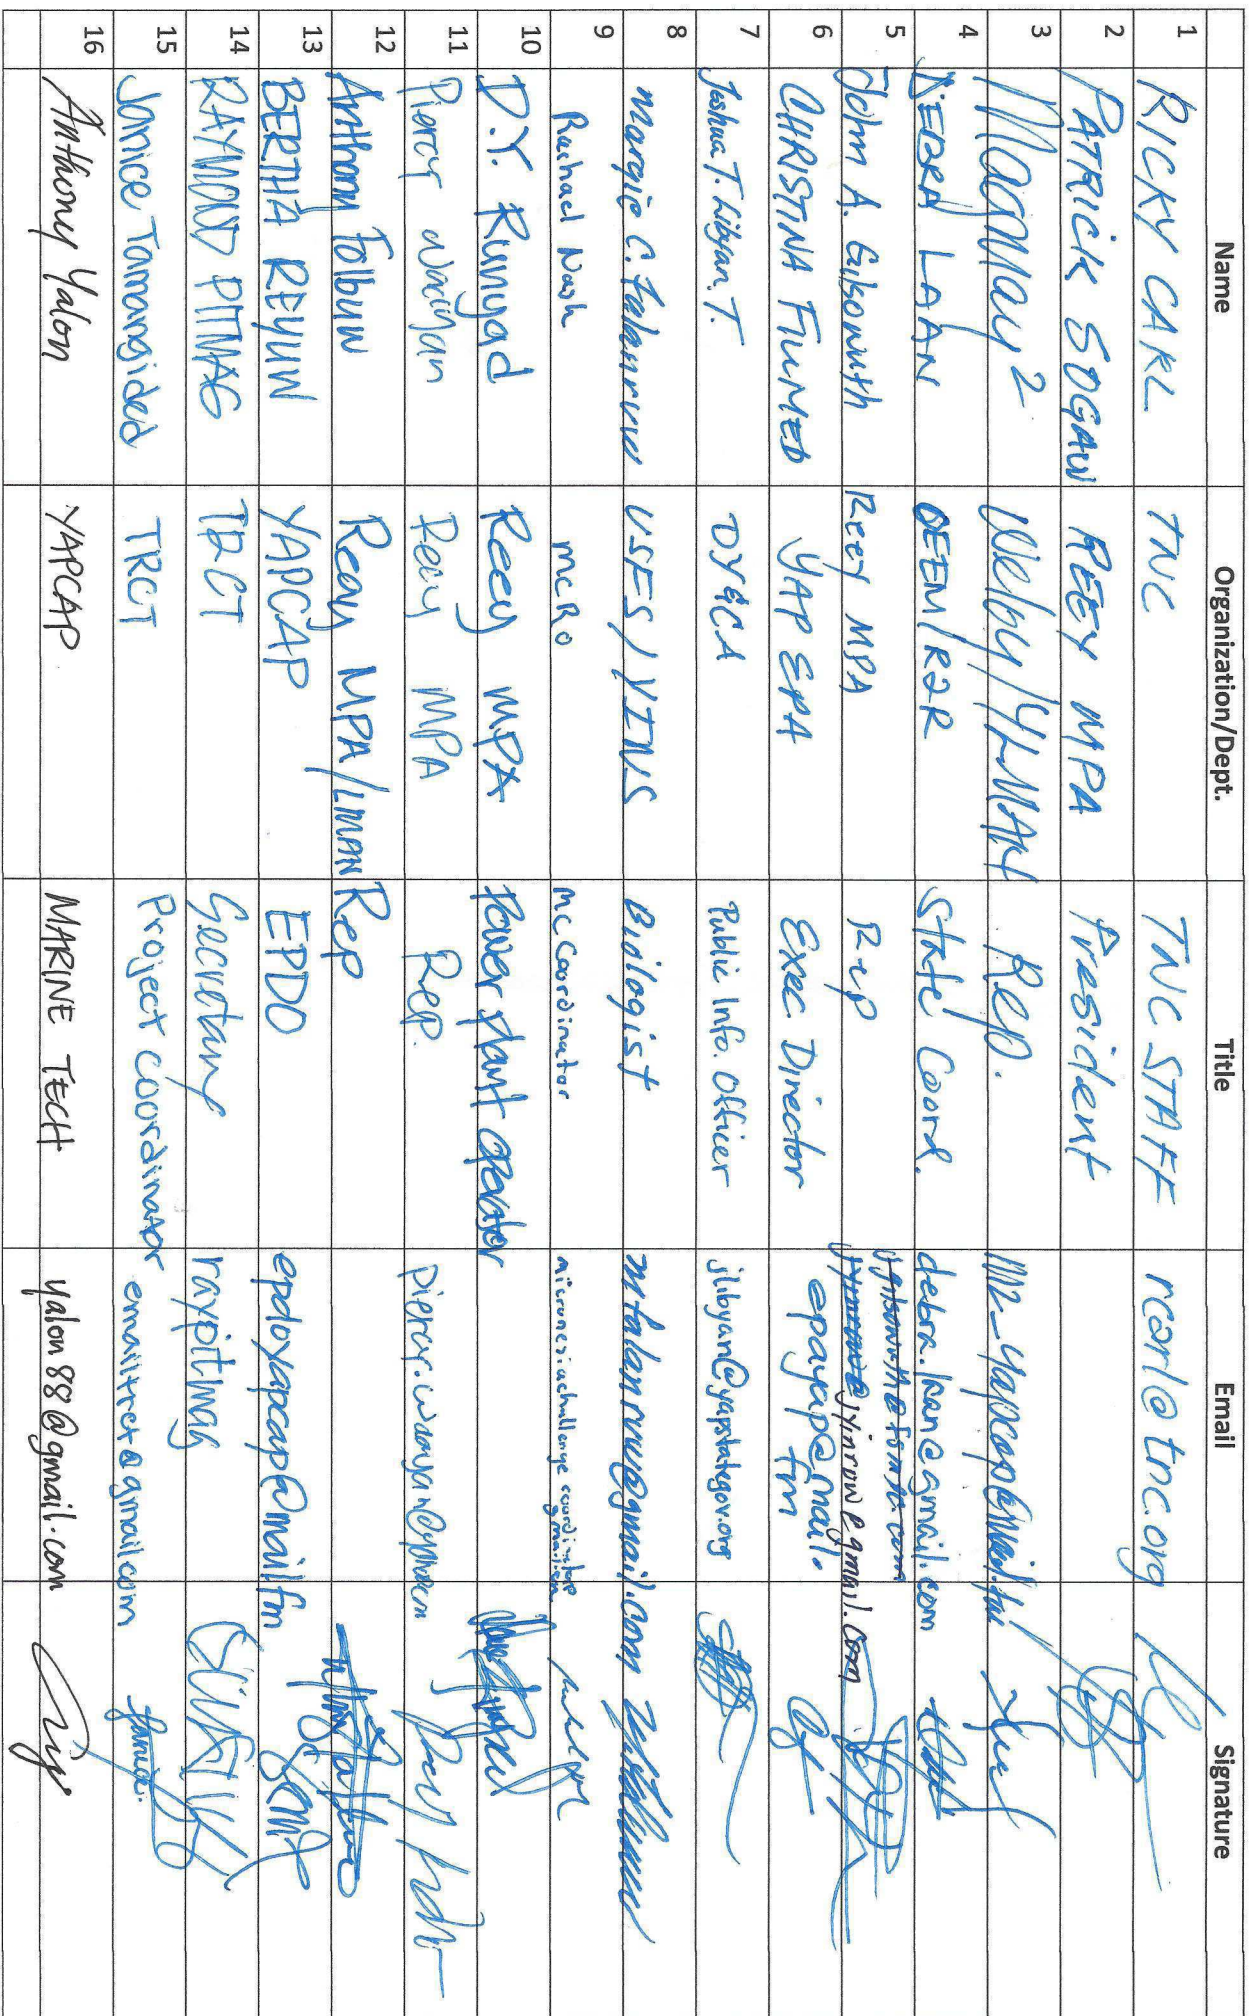 Name Organization/Dept. Title Email Signature
1 RICKY CARL TNC TNC STAFF rcarl@tnc.org
2 PATRICK SOGAW REEY MPA President
3 Magmay 2 Weloy/YLMAN Rep.
4 DEBRA LAAN OEEM/R2R State Coord. debra.laan@gmail.com
5 John A. Gilsowuth Reey MPA Rep jyinrow@gmail.com
6 CHRISTINA FILLMED YAP EPA Exec Director epayap@mail.fm
7 Joshua T. Libyan.T. DY&CA Public Info. Officer jlibyan@yapstategov.org
8 Margie C. Falanruw USFS/YINS Biologist mfalanruw@gmail.com
9 Rachael Nash MCRO MC Coordinator
10 D.Y. Runyad Reey MPA Power plant operator
11 Piercy Reey MPA Rep.
12 Anthony Tolbuw Reay MPA/LMAN Rep
13 BERTHA REYUW YAPCAP EPDO epdoyapcap@mail.fm
14 RAYMOND PITMAG TRCT Secretary raypitmag
15 Janice Tamangided TRCT Project coordinator emailtrct@gmail.com
16 Anthony Yalon YAPCAP MARINE TECH yalon88@gmail.com